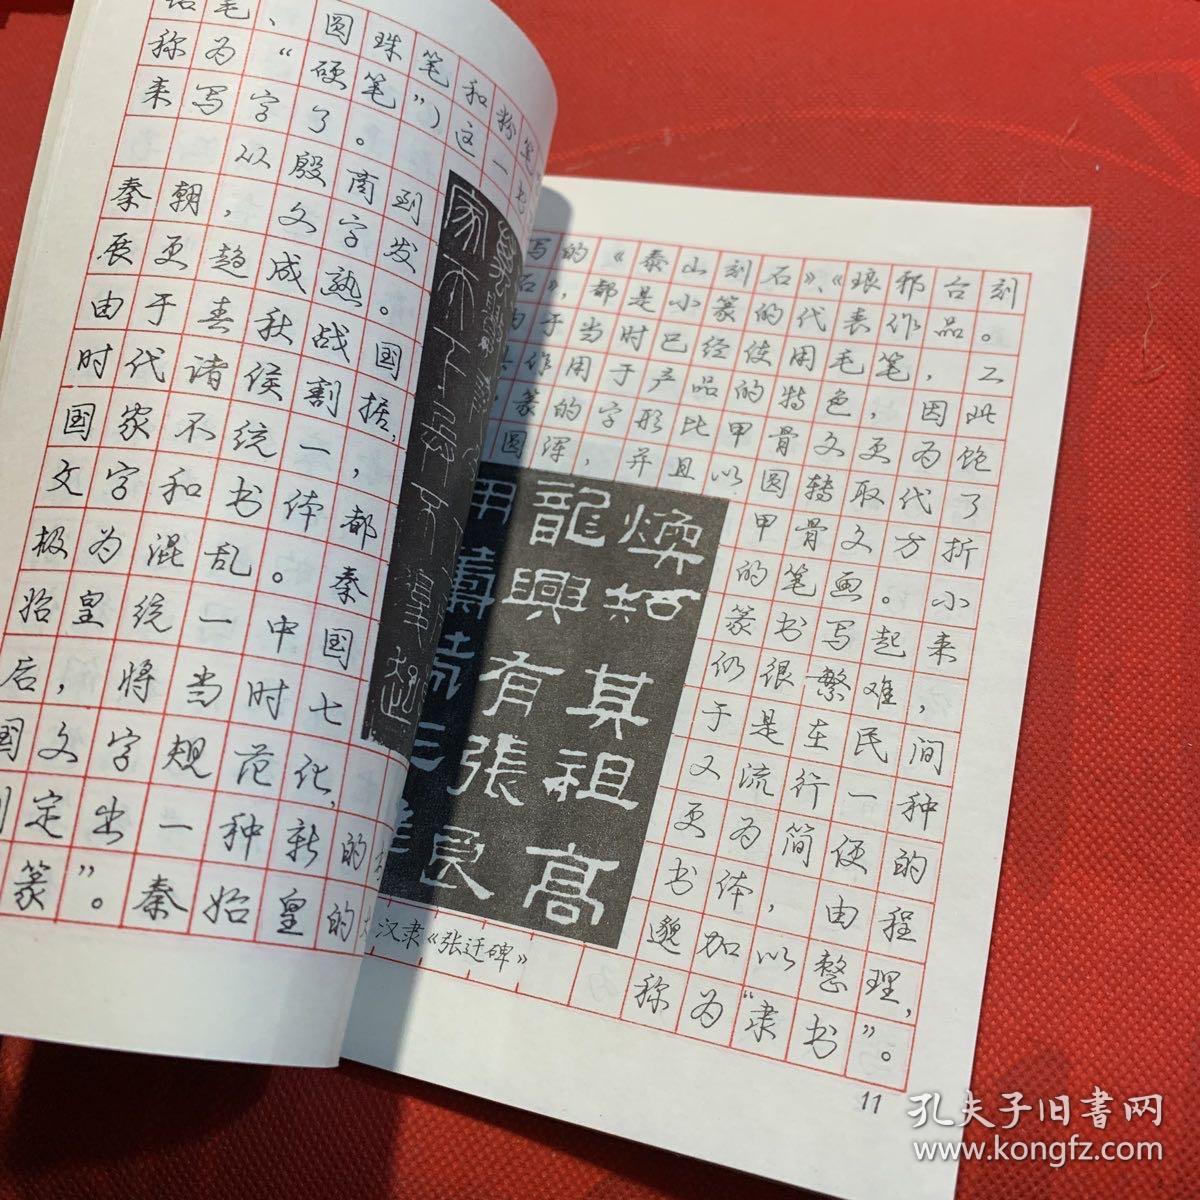 铅笔、圆珠笔和粉笔
称为“硬笔”)这一
来写字了。
从殷商到
秦朝，文字发
展更趋成熟。
由于春秋战国
时代诸侯割据，
国家不统一，
文字和书体都
极为混乱。秦
始皇统一中国
后，将当时七
国文字规范化，
制定出一种新的
篆”。秦始皇的
写的《泰山刻石》、《琅邪台刻
石》，都是小篆的代表作品。
由于当时已经使用毛笔，又
作用于产品的特色，因此
篆的字形比甲骨文更为饱
圆浑，并且以圆转取代了
甲骨文方折
的笔画。小
篆书写起来
仍很繁难，
于是在民间
又流行一种
更为简便的
书体，由程
邈加以整理，
称为“隶书”。
焕知其祖高
龍興有張良
用籌策
汉隶《张迁碑》
11
孔夫子旧书网
www.kongfz.com